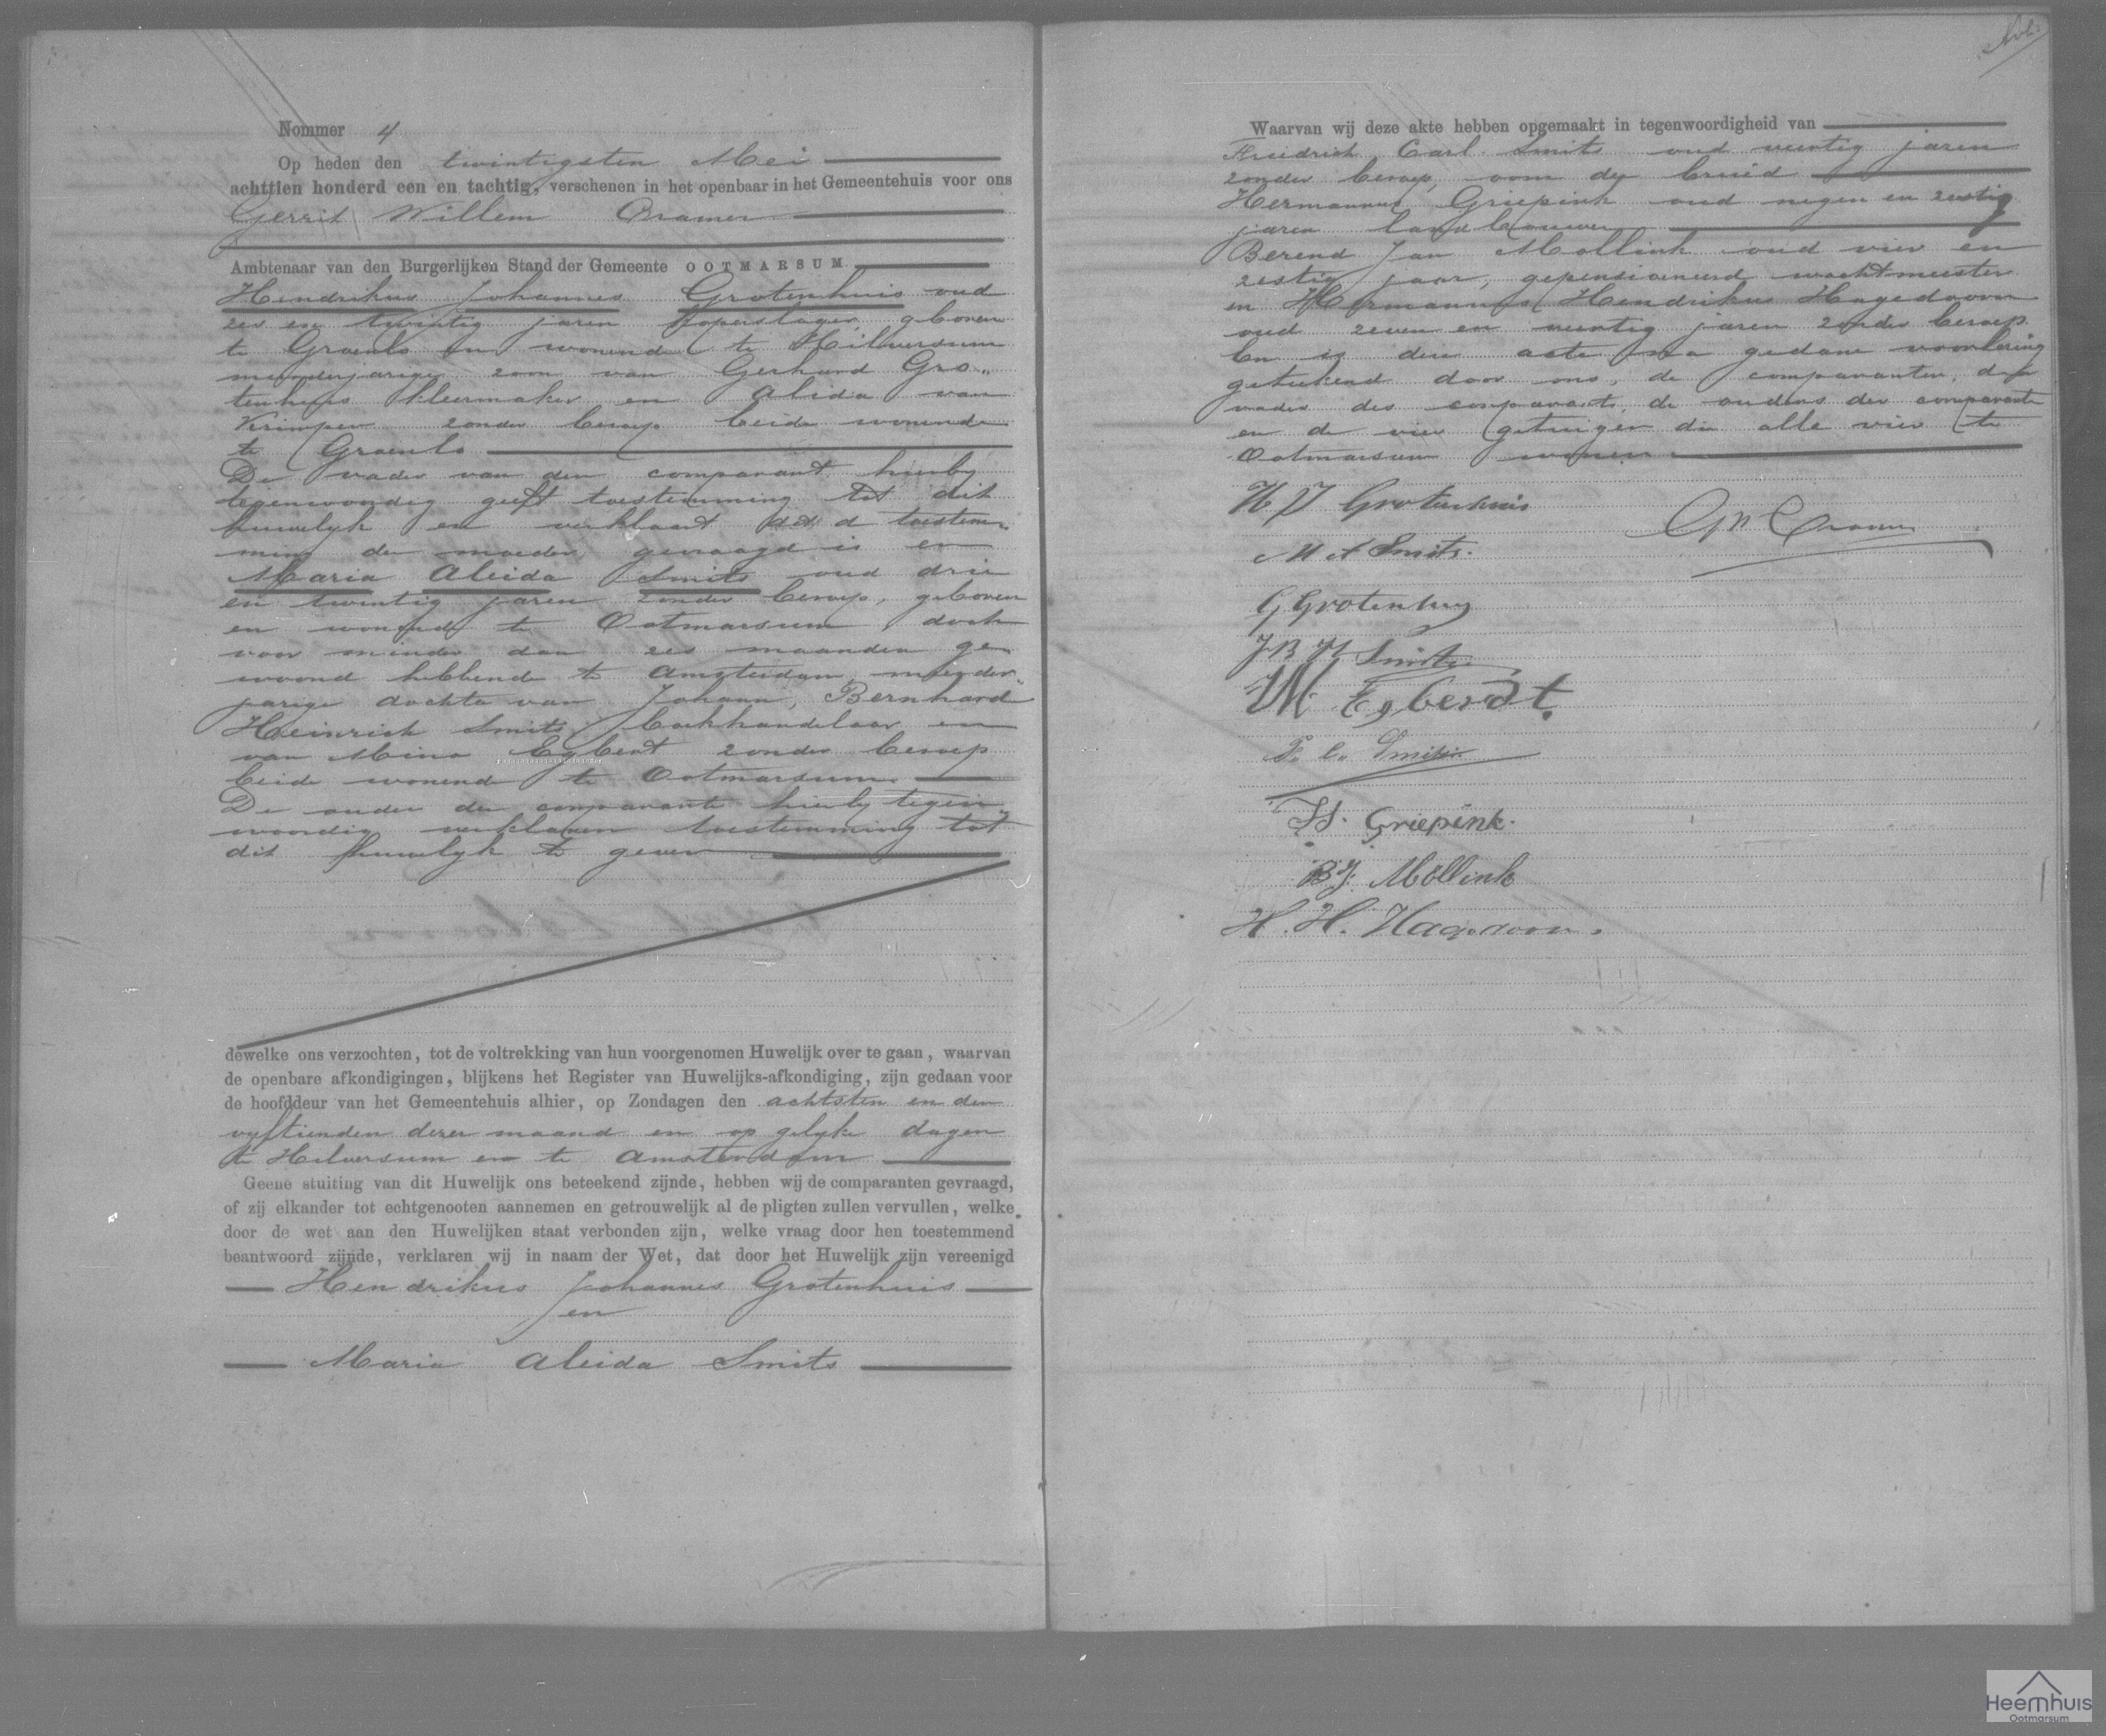 Nommer 4
Op heden den twintigsten Mei
achttien honderd een en tachtig, verschenen in het openbaar in het Gemeentehuis voor ons
Gerrit Willem Cramer
Ambtenaar van den Burgerlijken Stand der Gemeente OOTMARSUM
Hendrikus Johannes Grotenhuis oud
zes en twintig jaren koperslager, geboren
te Groenlo en wonende te Hilversum
meerderjarige zoon van Gerhard Gro„
tenhuis kleermaker en Alida van
Krimpen zonder beroep beide wonende
te Groenlo
De vader van den comparant hierby
tegenwoordig geeft toestemming tot dit
huwelyk en verklaart dat d toestem„
ming der moeder gevraagd is en
Maria Aleida Smits oud drie
en twintig jaren zonder beroep, geboren
en wonende te Ootmarsum, doch
voor minder dan zes maanden ge„
woond hebbende te Amsterdam, meerder„
jarige dochter van Johann, Bernhard
Heinrich Smits, boekhandelaar en
van Mina Egberdt zonder beroep
beide wonende te Ootmarsum.
De ouders der comparante hierby tegen„
woordig verklaren toestemming tot
dit huwelyk te geven
dewelke ons verzochten, tot de voltrekking van hun voorgenomen Huwelijk over te gaan, waarvan
de openbare afkondigingen, blijkens het Register van Huwelijks-afkondiging, zijn gedaan voor
de hoofddeur van het Gemeentehuis alhier, op Zondagen den achtsten en den
vyftienden dezer maand en op gelyke dagen
te Hilversum en te Amsterdam
Geene stuiting van dit Huwelijk ons beteekend zijnde, hebben wij de comparanten gevraagd,
of zij elkander tot echtgenooten aannemen en getrouwelijk al de pligten zullen vervullen, welke
door de wet aan den Huwelijken staat verbonden zijn, welke vraag door hen toestemmend
beantwoord zijnde, verklaren wij in naam der Wet, dat door het Huwelijk zijn vereenigd
Hendrikus Johannes Grotenhuis
en
Maria Aleida Smits
Waarvan wij deze akte hebben opgemaakt in tegenwoordigheid van
Friedrich Carl Smits oud veertig jaren
zonder beroep, oom der bruid
Hermannus Griepink oud negen en zestig
jaren landbouwer
Berend Jan Mollink oud vier en
zestig jaar, gepensioneerd wachtmeester
en Hermannus Hendrikus Hagedoorn
oud zeven en veertig jaren zonder beroep.
En is deze acte na gedane voorlezing
geteekend door ons, de comparanten, den
vader des comparants, de ouders der comparante
en de vier getuigen die alle vier te
Ootmarsum wonen
H J Grotenhuis
GW Cramer
M A Smits.
G Grotenhuys
J B H Smits
M Egberdt.
F. C. Smits
H. Griepink.
B.J. Mollink
H. H. Hagedoorn.
Heemhuis
Ootmarsum